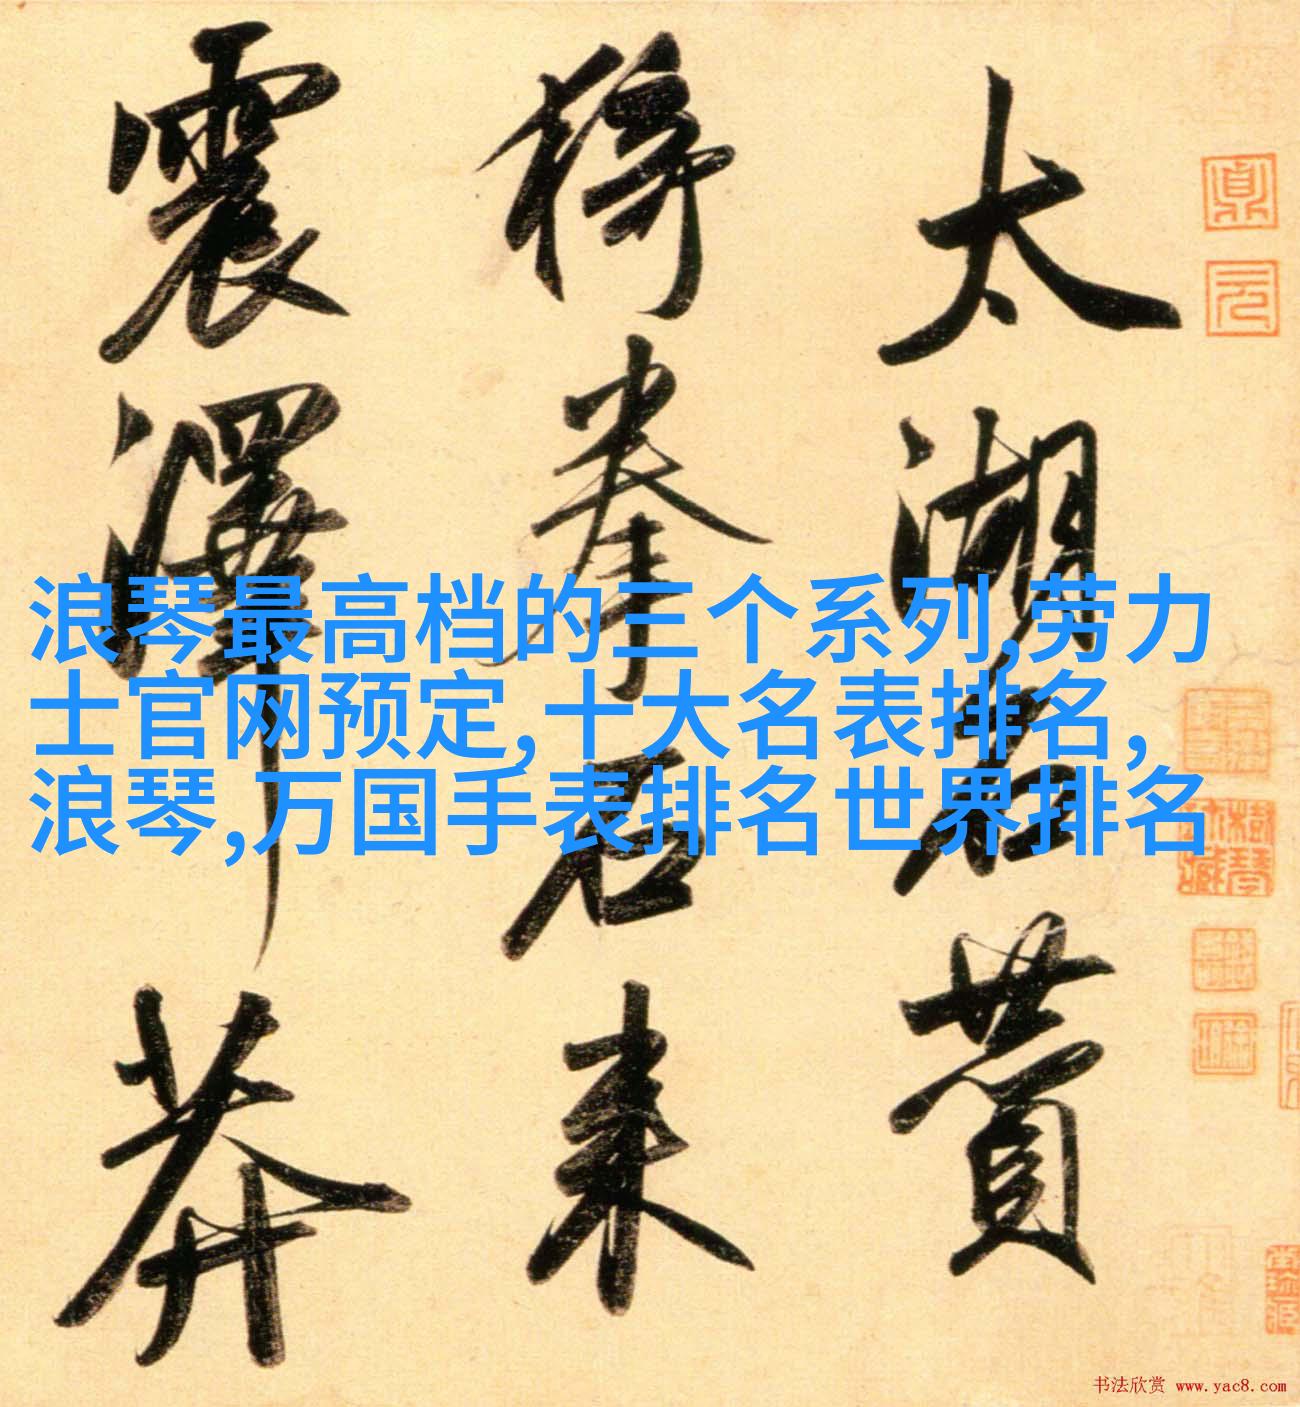 太湖石贊
猗拳石来
震澤莽
浪琴最高档的三个系列,劳力
士官网预定,十大名表排名,
浪琴,万国手表排名世界排名
书法欣赏 www.yac8.com